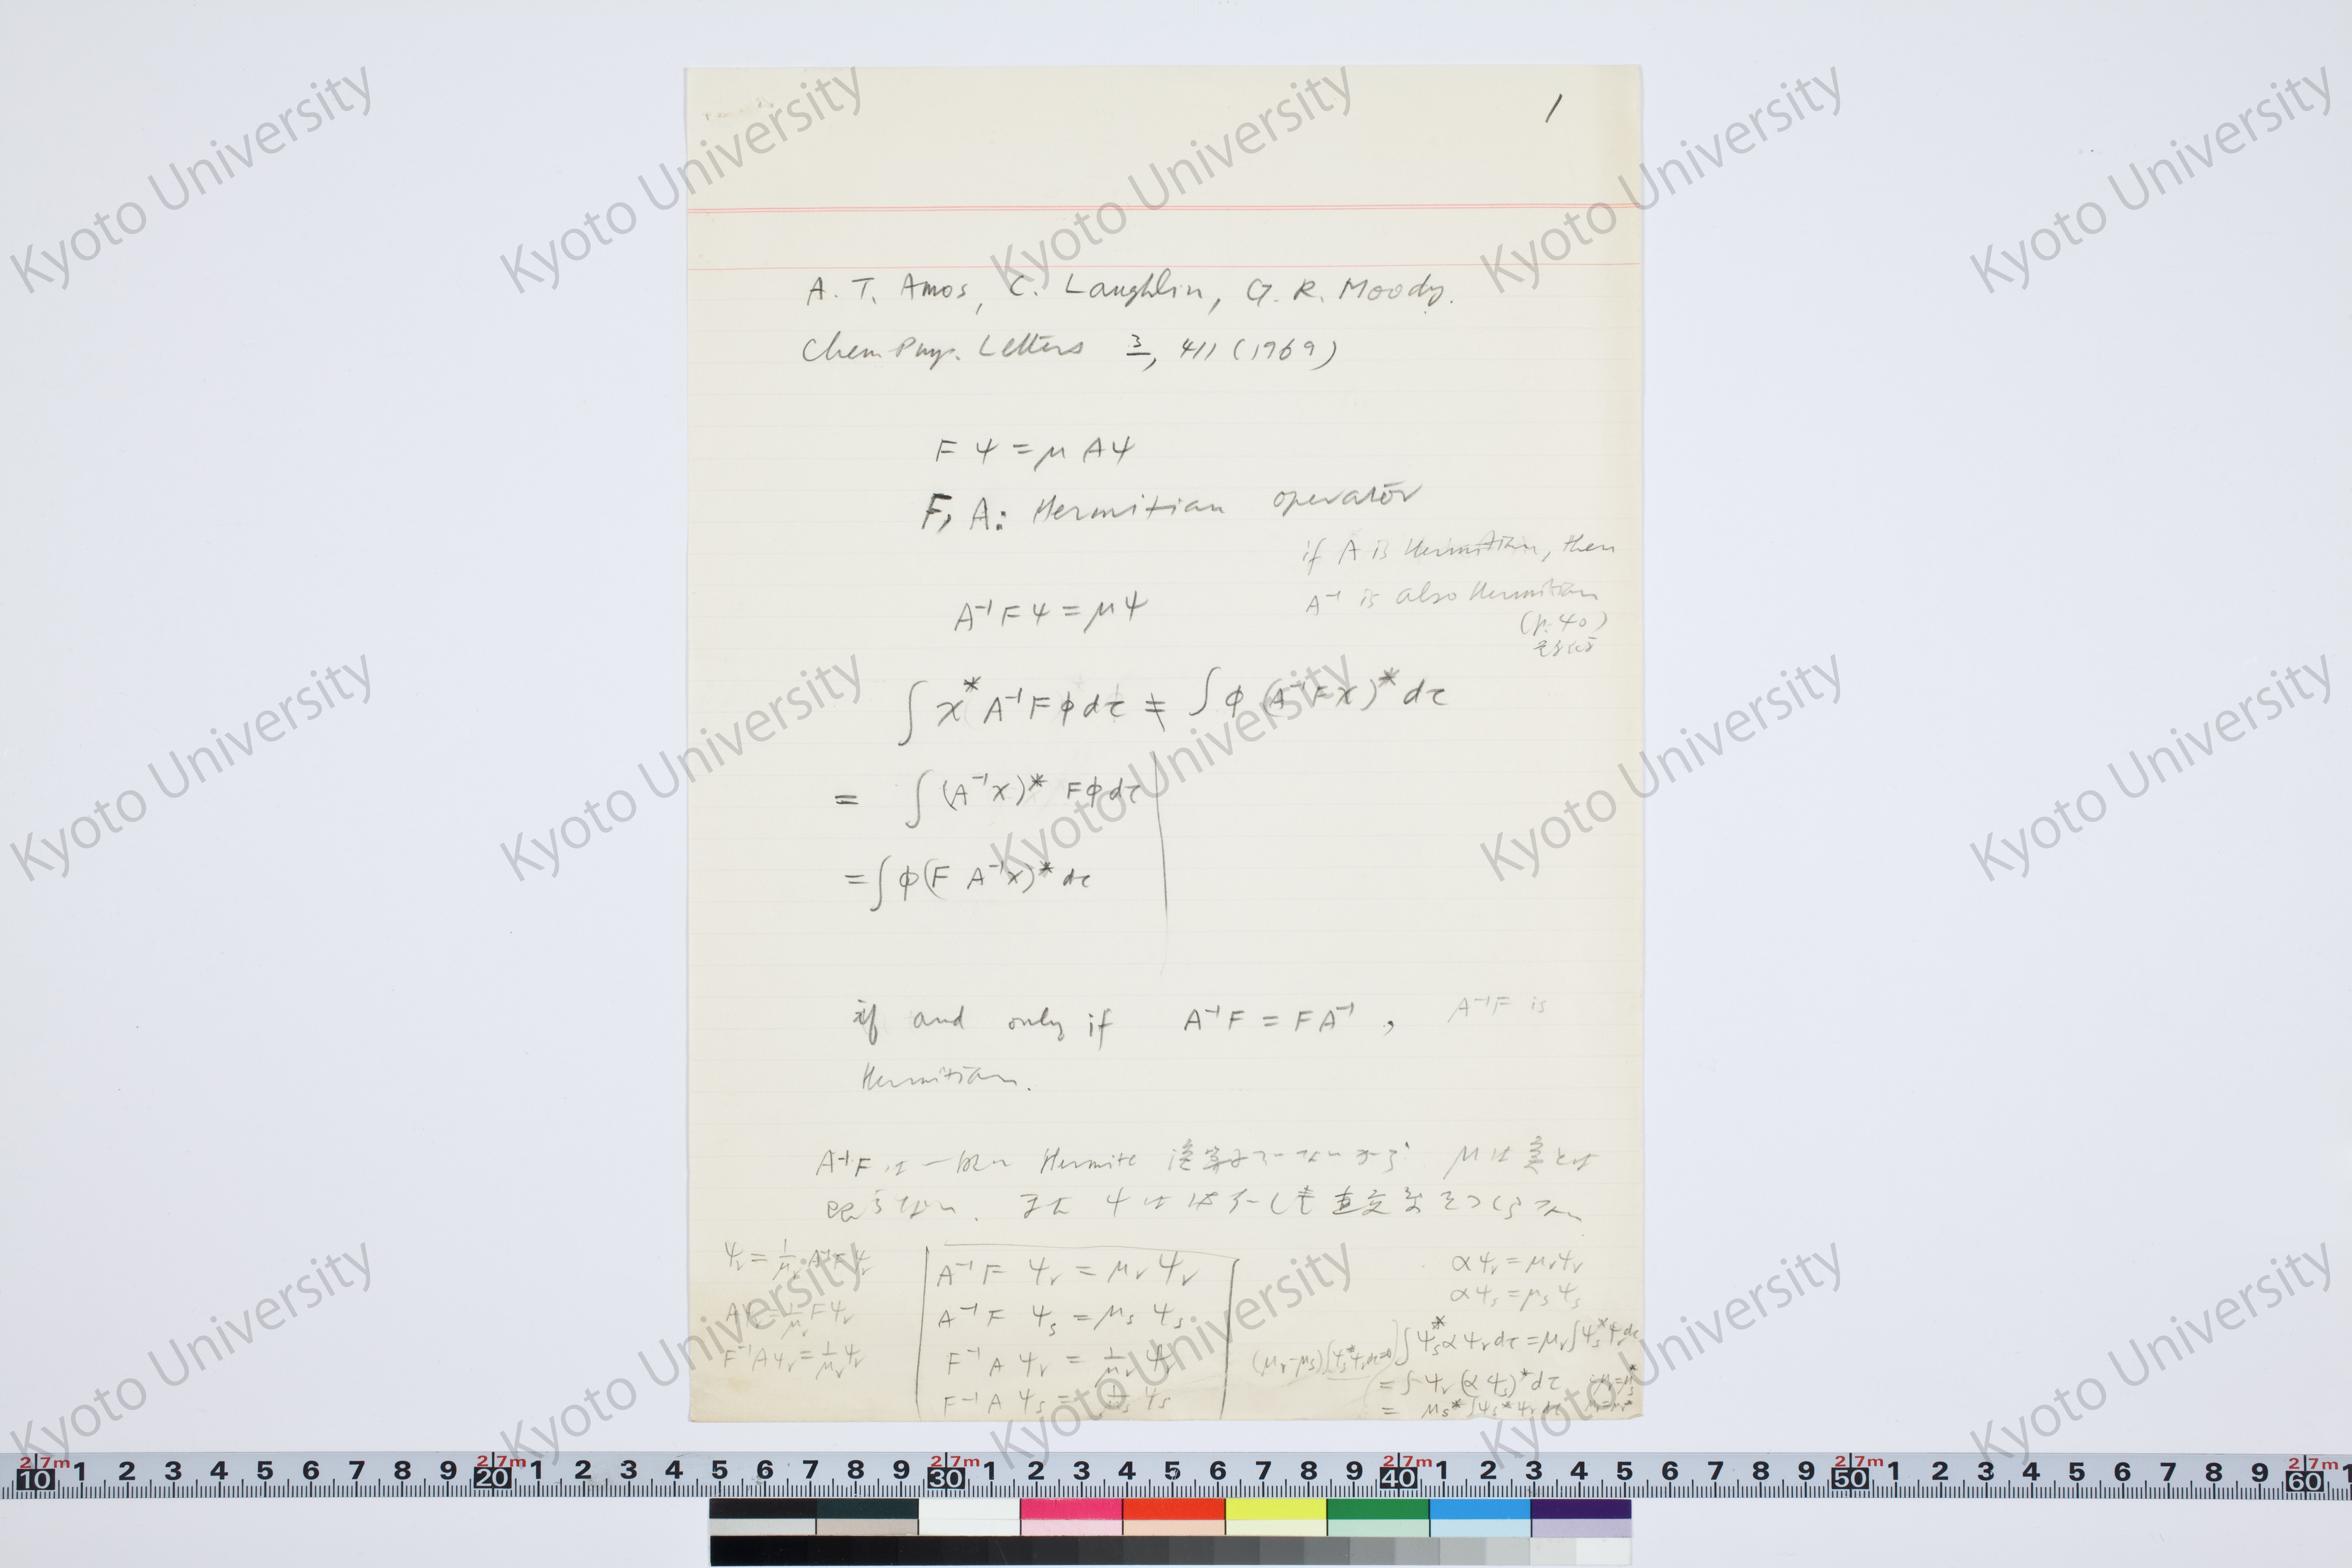 1
A. T. Amos, C. Laughlin, G. R. Moody.
Chem. Phys. Letters 3, 411 (1969)
F ψ = μ A ψ
F, A: Hermitian operator
if A is Hermitian, then
A⁻¹ is also Hermitian
(p. 40)
A⁻¹ F ψ = μ ψ
∫ χ* A⁻¹ F φ dτ ≠ ∫ φ (A⁻¹ F χ)* dτ
= ∫ (A⁻¹ χ)* F φ dτ
= ∫ φ (F A⁻¹ χ)* dτ
if and only if A⁻¹ F = F A⁻¹ , A⁻¹ F is
Hermitian.
A⁻¹F は一般に Hermite 演算子でないから μ は実とは
限らない. また ψ は必ずしも直交系をつくらない
ψᵣ = 1/μᵣ A⁻¹ F ψᵣ
Aψᵣ = 1/μᵣ F ψᵣ
F⁻¹ A ψᵣ = 1/μᵣ ψᵣ
A⁻¹ F ψᵣ = μᵣ ψᵣ
A⁻¹ F ψₛ = μₛ ψₛ
F⁻¹ A ψᵣ = 1/μᵣ ψᵣ
F⁻¹ A ψₛ = 1/μₛ ψₛ
α ψᵣ = μᵣ ψᵣ
α ψₛ = μₛ ψₛ
∫ ψₛ* α ψᵣ dτ = μᵣ ∫ ψₛ* ψᵣ dτ
(μᵣ − μₛ) ∫ ψₛ* ψᵣ dτ = 0
= ∫ ψᵣ (α ψₛ)* dτ
= μₛ* ∫ ψₛ* ψᵣ dτ
Kyoto University